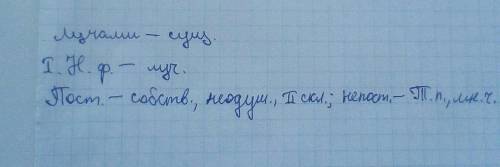 Лучами – сущ.
I. Н. ф. – луч.
Пост. – собств., неодуш., II скл.; непост. – Т. п., мн. ч.